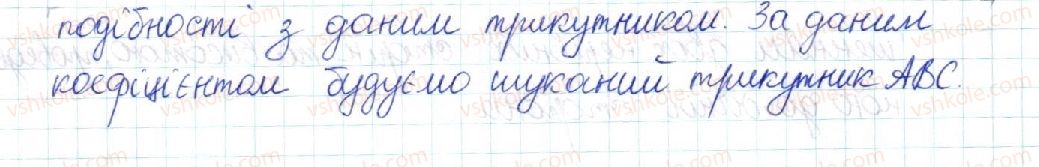 подібності з даним трикутником. За даним
коефіцієнтом будуємо шуканий трикутник ABC.